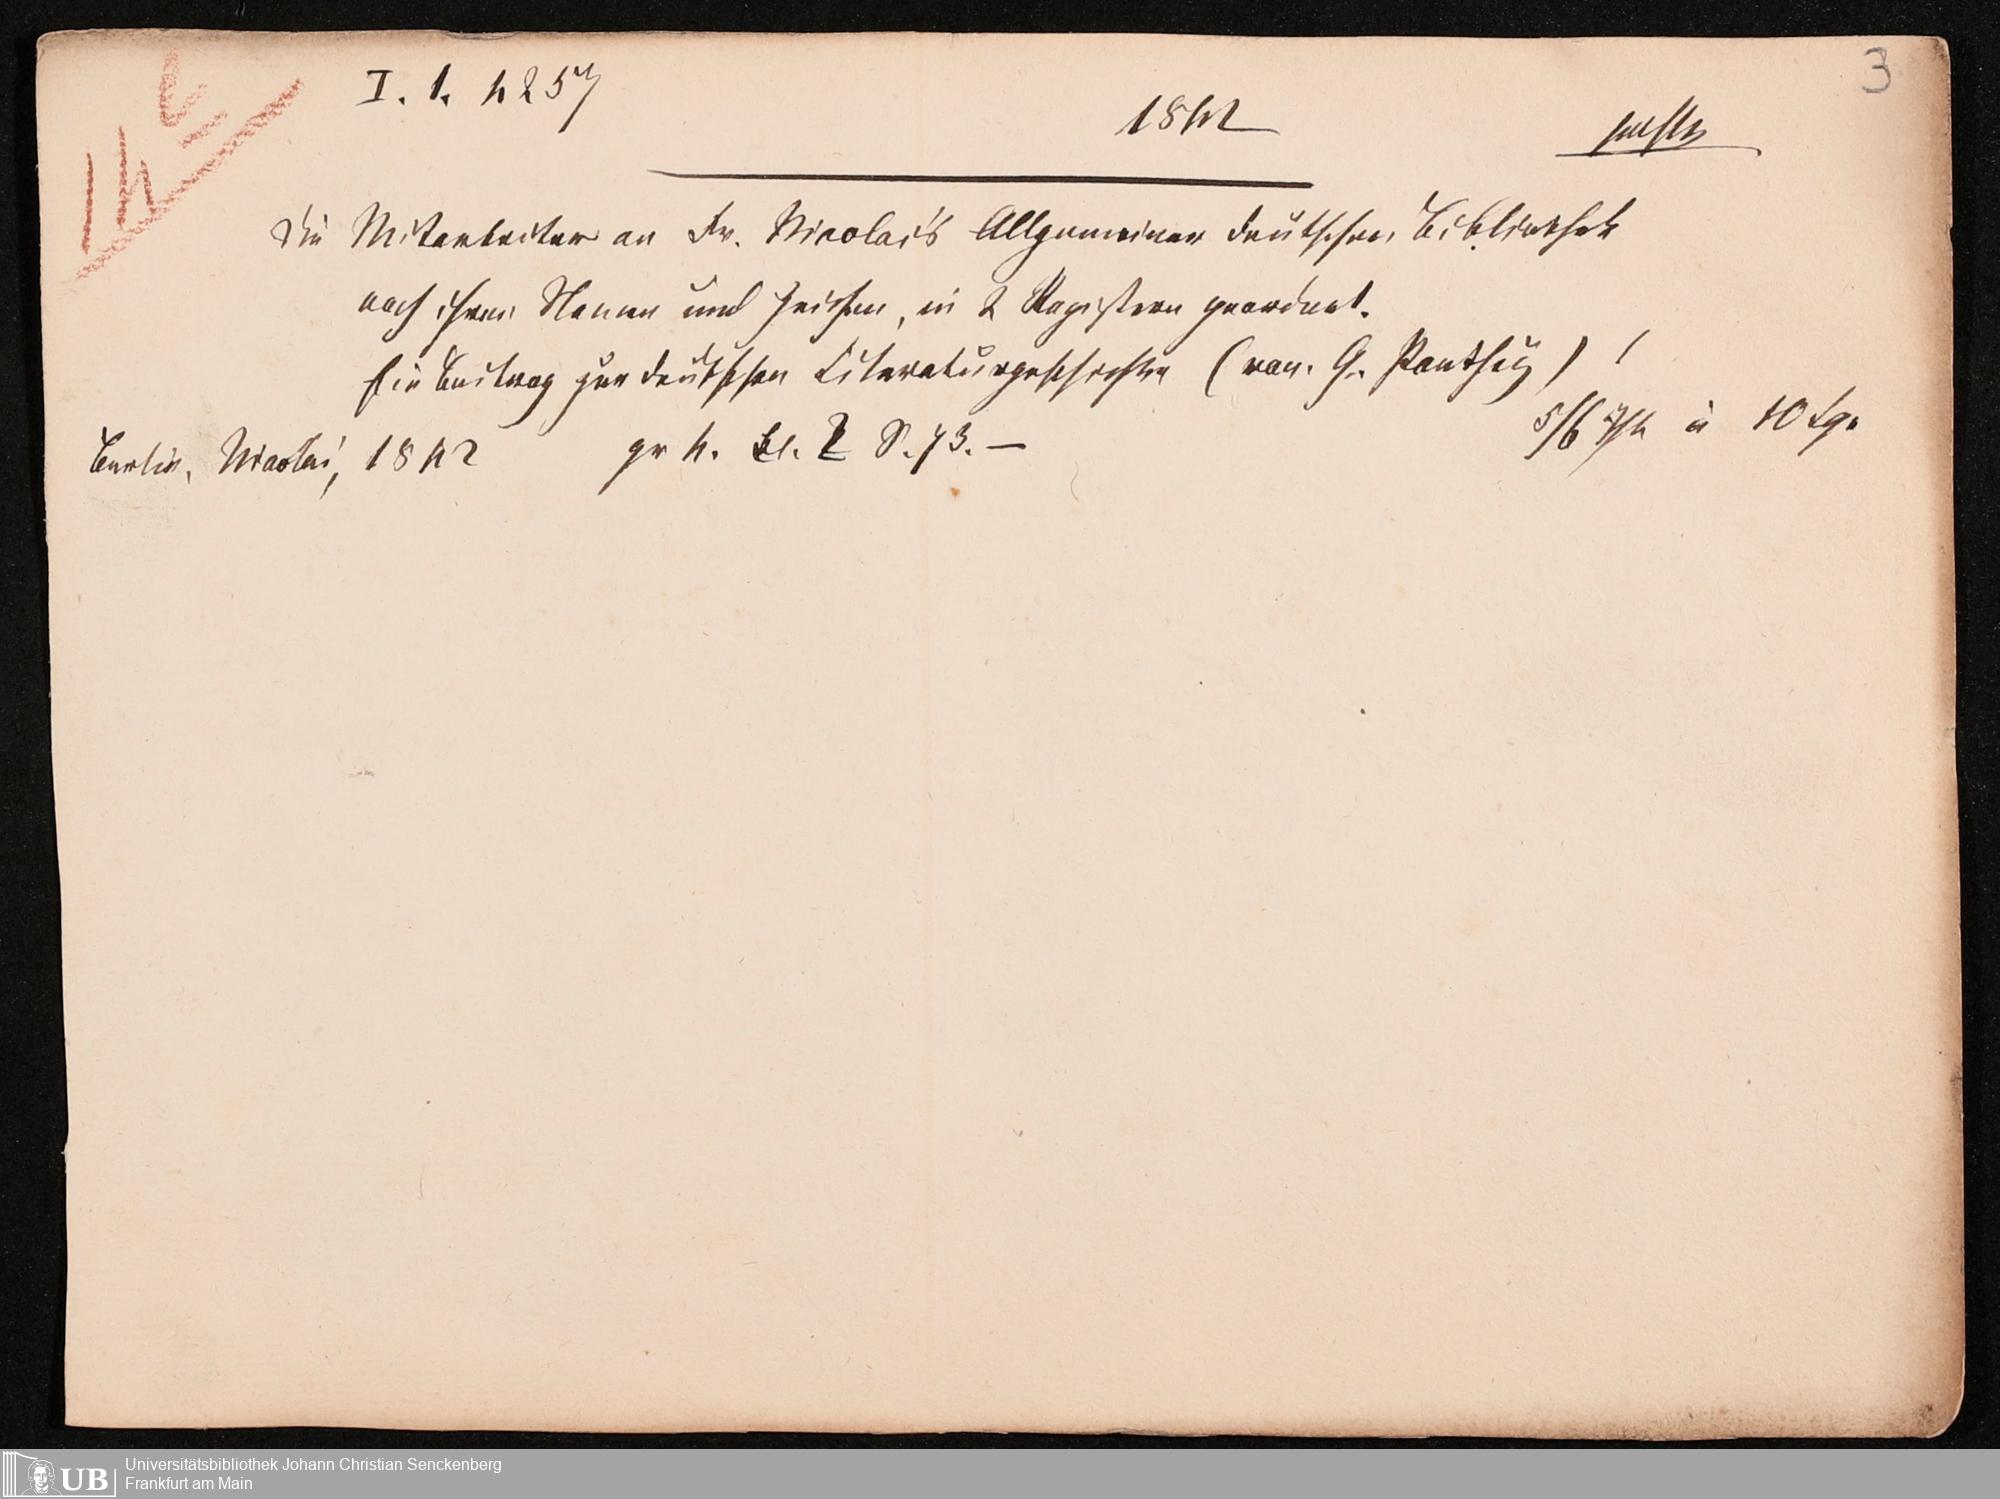 3
I. 1. 4257
14 c
1842
Die Mitarbeiter an Fr. Nicolai's Allgemeiner deutschen Bibliothek
nach ihren Namen und Zeichen, in 2 Registern geordnet.
Ein Beitrag zur deutschen Literaturgeschichte (von G. Parthey) !
5/6 à 10 Sgr
Berlin, Nicolai, 1842 gr 4. 2 S. 73. —
Universitätsbibliothek Johann Christian Senckenberg
UB Frankfurt am Main